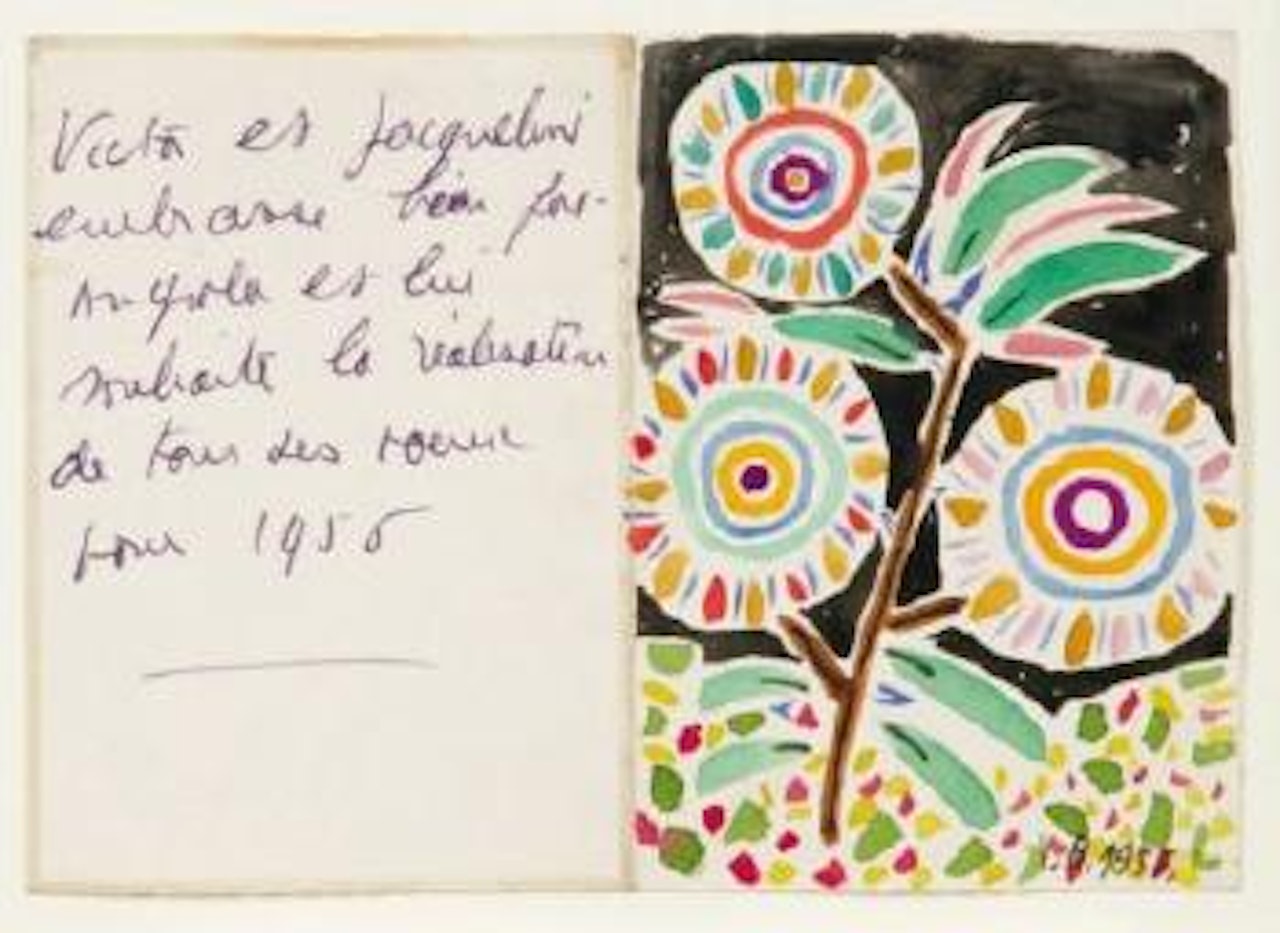 Victor et Jacqueline
embrasse bien for-
et lui
souhaite la réalisation
de tous ses voeux
pour 1956
1956